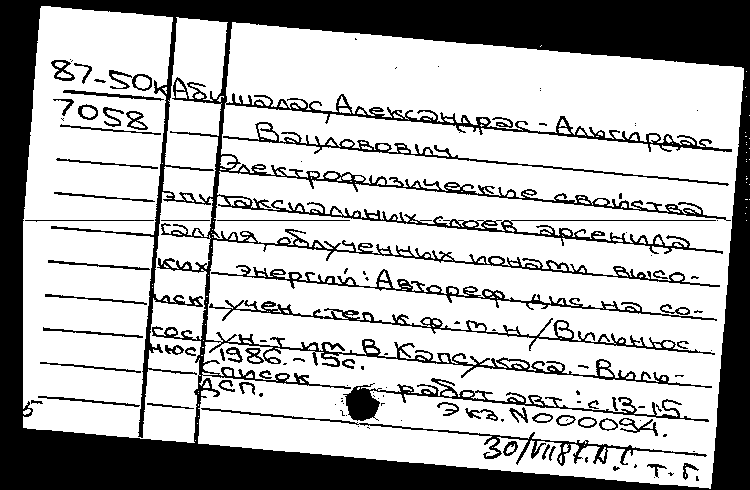 87-50к Абишалас, Александрас-Альгирдас
7058 Вацловович.
Электрофизические свойства
эпитаксиальных слоев арсенида
галлия, облученных ионами высо-
ких энергий: Автореф. дис. на со-
иск. учен. степ. к.ф.-м.н. / Вильнюс.
гос. ун-т им. В. Капсукаса. - Виль-
нюс, 1986. - 15с.
Список работ авт.: с. 13-15.
ДСП. Экз. N000094.
30/VII87. А.С. т.г.